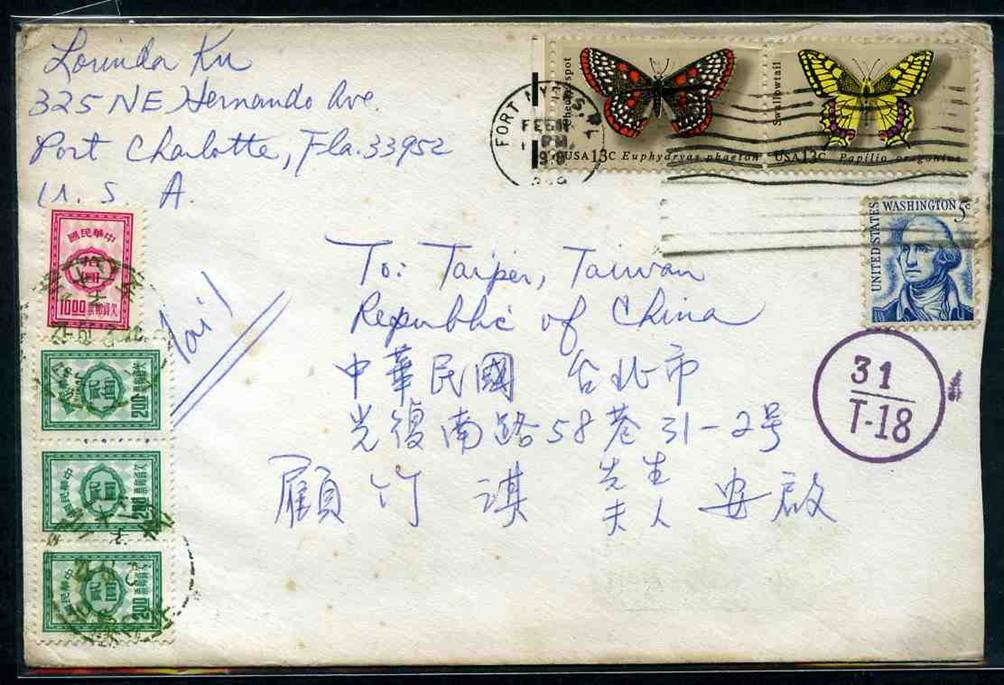 Lorinda Ku
325 NE Hernando Ave.
Port Charlotte, Fla. 33952
U. S. A.
FORT MYERS
FEB
PM
Checkerspot
USA 13c Euphydryas phaeton
Swallowtail
USA 13c Papilio oregonius
UNITED STATES
WASHINGTON 5c
To: Taipei, Taiwan
Republic of China
中華民國 台北市
光復南路58巷31-2号
顧竹淇 先生 夫人 安啟
31
T-18
國民華中
10.00
欠資郵票
國民華中
200
欠資郵票
國民華中
200
欠資郵票
國民華中
200
欠資郵票